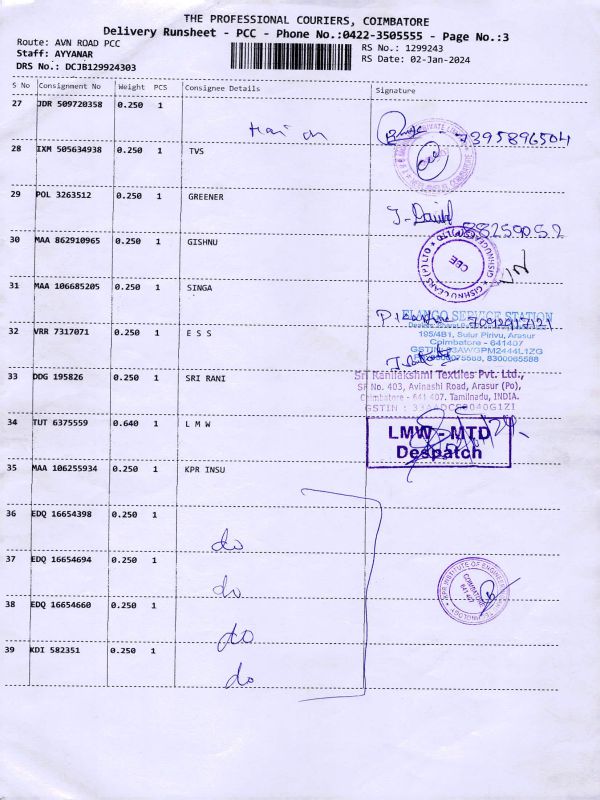 THE PROFESSIONAL COURIERS, COIMBATORE
Delivery Runsheet - PCC - Phone No.:0422-3505555 - Page No.:3
Route: AVN ROAD PCC
Staff: AYYANAR
DRS No.: DCJB129924303
RS No.: 1299243
RS Date: 02-Jan-2024
S No Consignment No Weight PCS Consignee Details Signature
27 JDR 509720358 0.250 1
7395896504
28 IXM 505634938 0.250 1 TVS
29 POL 3263512 0.250 1 GREENER
J. David
88259052
30 MAA 862910965 0.250 1 GISHNU
GISHNU GEARS (P) LTD
CBE
31 MAA 106685205 0.250 1 SINGA
ELANGO SERVICE STATION
195/4B1, Sulur Pirivu, Arasur
Coimbatore - 641407
32 VRR 7317071 0.250 1 E S S
33 DDG 195826 0.250 1 SRI RANI
Sri Ranilakshmi Textiles Pvt. Ltd.,
SF No. 403, Avinashi Road, Arasur (Po),
Coimbatore - 641 407. Tamilnadu, INDIA.
34 TUT 6375559 0.640 1 L M W
LMW - MTD
Despatch
35 MAA 106255934 0.250 1 KPR INSU
36 EDQ 16654398 0.250 1
do
37 EDQ 16654694 0.250 1
do
KPR INSTITUTE OF ENGINEERING
TECHNOLOGY
COIMBATORE
641 407
38 EDQ 16654660 0.250 1
do
39 KDI 582351 0.250 1
do